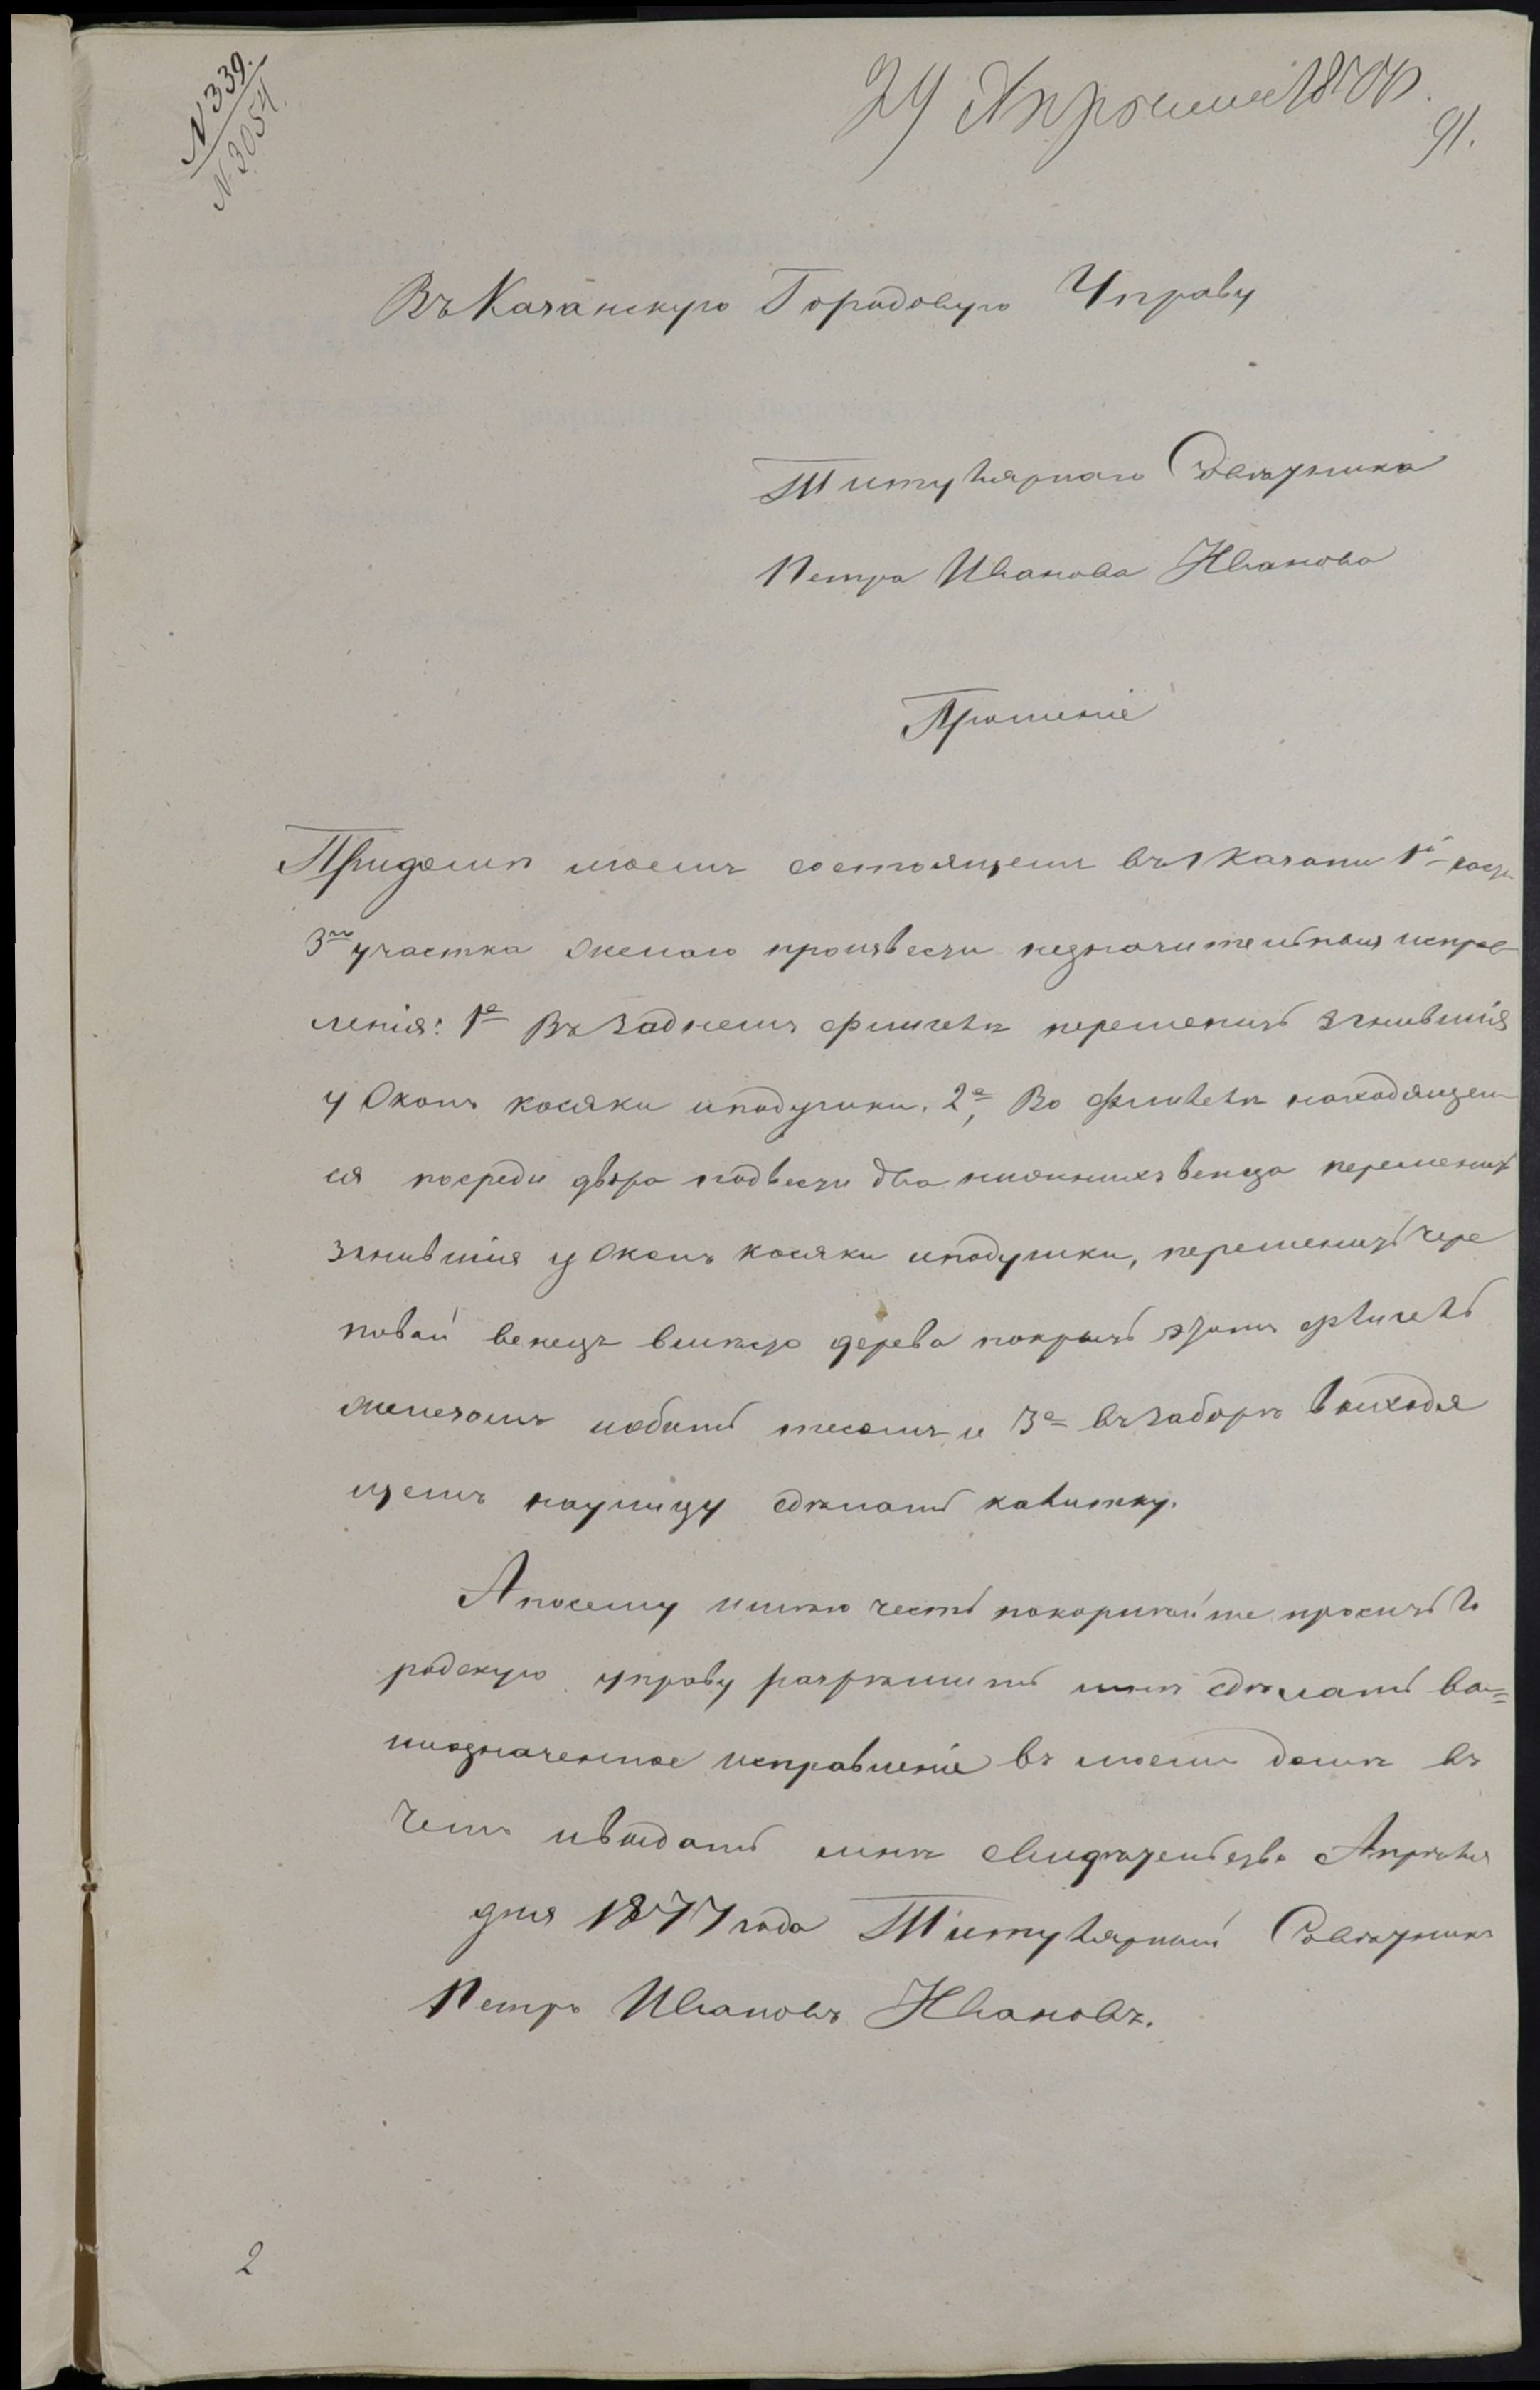 N 339.
N. 3054.
29 Апреля 1877.
91.
Въ Казанскую Городовую Управу
Титулярнаго Советника
Петра Иванова Иванова
Прошеніе
При доме моемъ состоящемъ въ г Казани 1й части
3го участка желаю произвести незначительныя исправ-
ленія: 1е Въ заднемъ флигеле переменить згнившія
у Оконъ косяки и подушки. 2е, Во флигеле находящем
ся посреди двора подвести два нижнихъ венца переменить
згнившія у Оконъ косяки и подушки, переменить чере
повой венецъ вместо дерева покрыть этотъ флигель
железомъ и обить тесомъ и 3е въ заборе выходя
щемъ на улицу сделать калитку.
А посему имею честь покорнейше просить Го
родскую управу разрешить мне сделать вы=
шеозначенное исправленіе въ моемъ доме въ
чемъ и выдать мне свидетельство Апреля
дня 1877 года Титулярный Советникъ
Петръ Ивановъ Ивановъ.
2